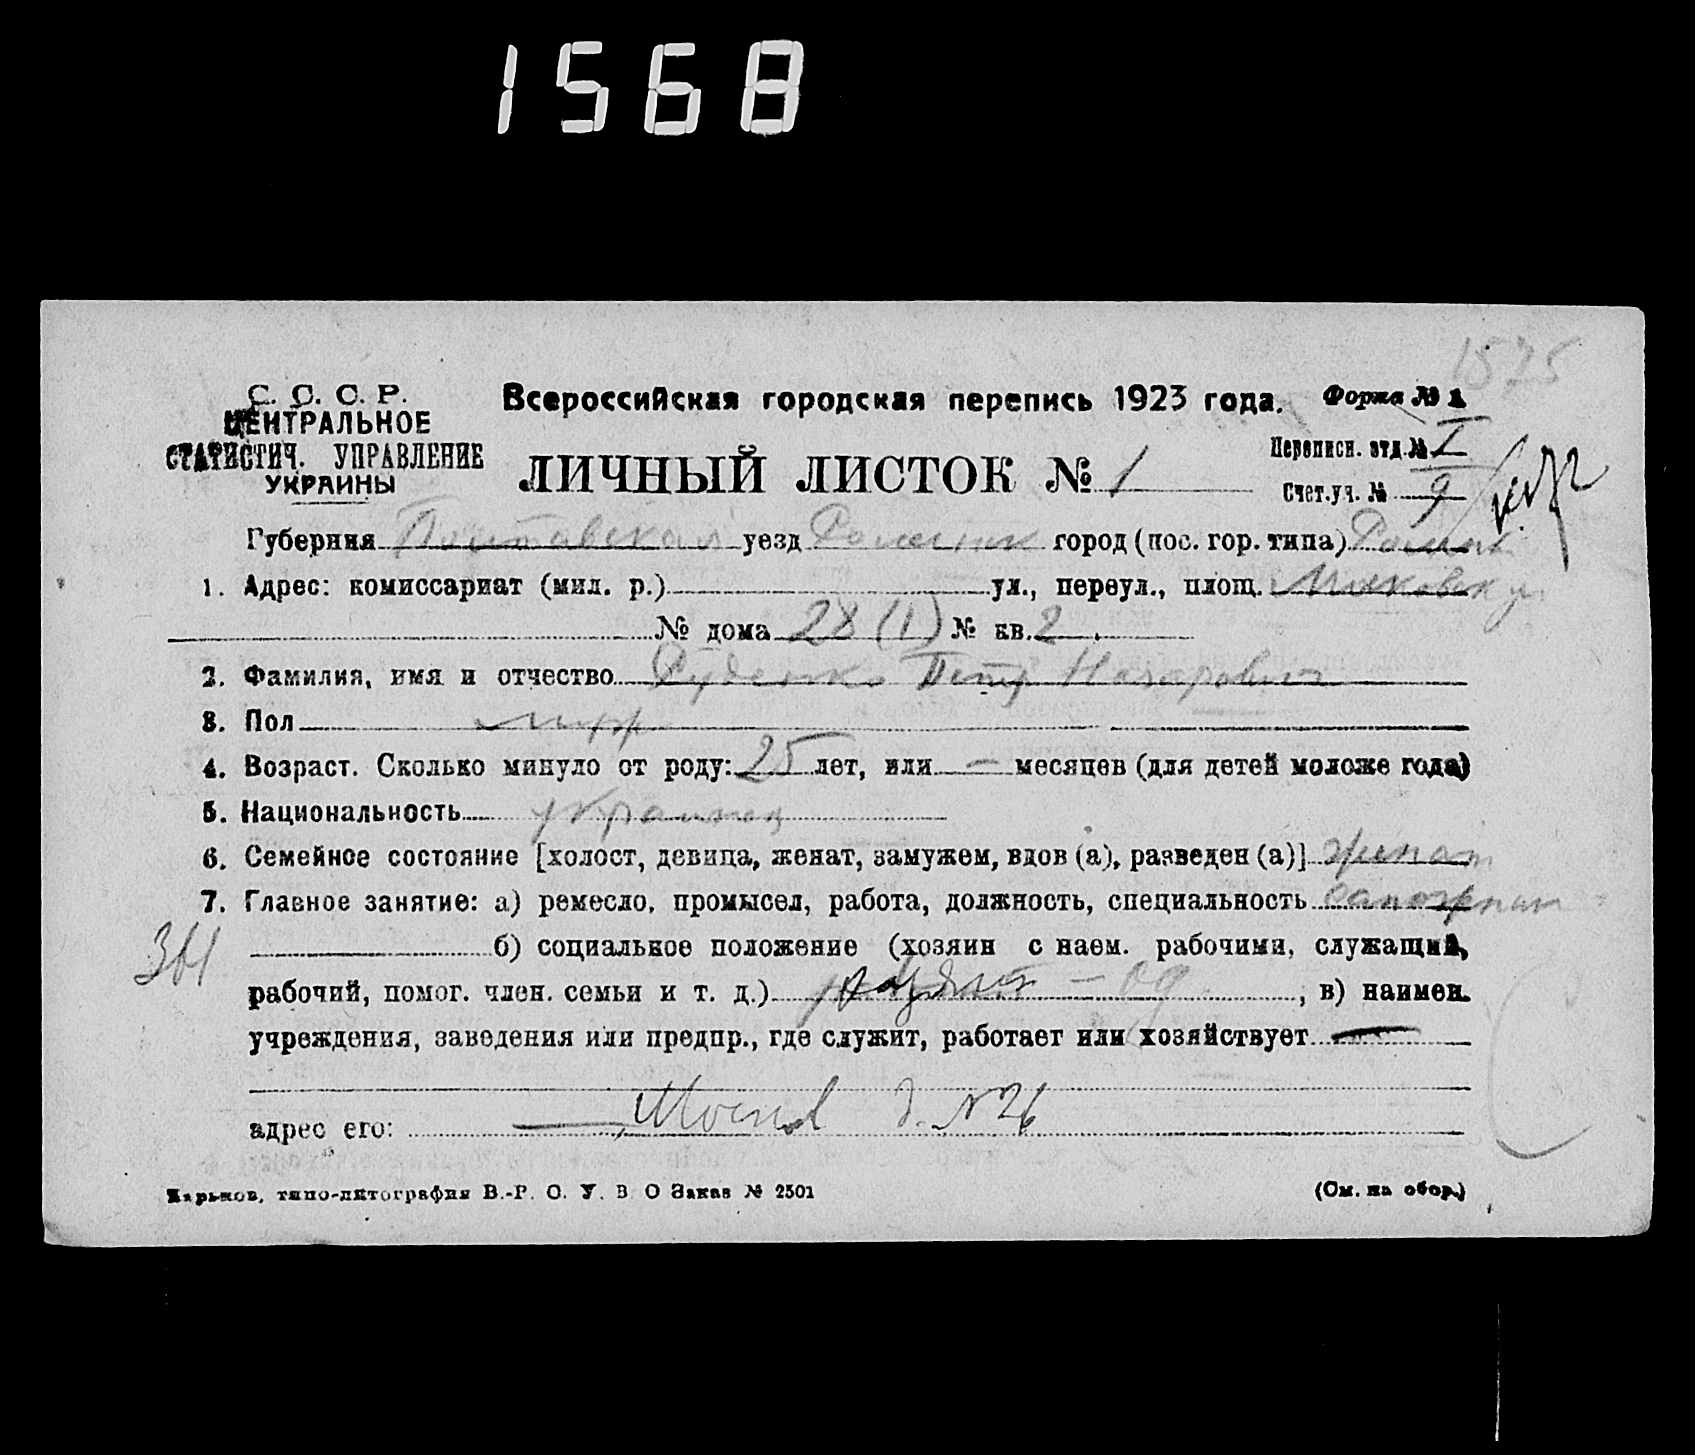 1568
1575
С. С. С. Р.
ЦЕНТРАЛЬНОЕ
СТАТИСТИЧ. УПРАВЛЕНИЕ
УКРАИНЫ
Всероссийская городская перепись 1923 года.
Форма № 1
ЛИЧНЫЙ ЛИСТОК № 1
Переписн. отд. № I
Счет.уч. № 9
Губерния Полтавская уезд Роменск город (пос. гор. типа) Ромны
1. Адрес: комиссариат (мил. р.) ул., переул., площ.
№ дома 28 (1) № кв. 2
2. Фамилия, имя и отчество Руденко Петр Назарович
3. Пол муж
4. Возраст. Сколько минуло от роду: 25 лет, или — месяцев (для детей моложе года)
5. Национальность украинец
6. Семейное состояние [холост, девица, женат, замужем, вдов (а), разведен (а)] женат
7. Главное занятие: а) ремесло, промысел, работа, должность, специальность сапожник
б) социальное положение (хозяин с наем. рабочими, служащий,
рабочий, помог. член. семьи и т. д.) , в) наимен.
учреждения, заведения или предпр., где служит, работает или хозяйствует —
адрес его: — д. № 26
Харьков, типо-литография В.-Р. О. У. В О Заказ № 2501
(См. на обор.)